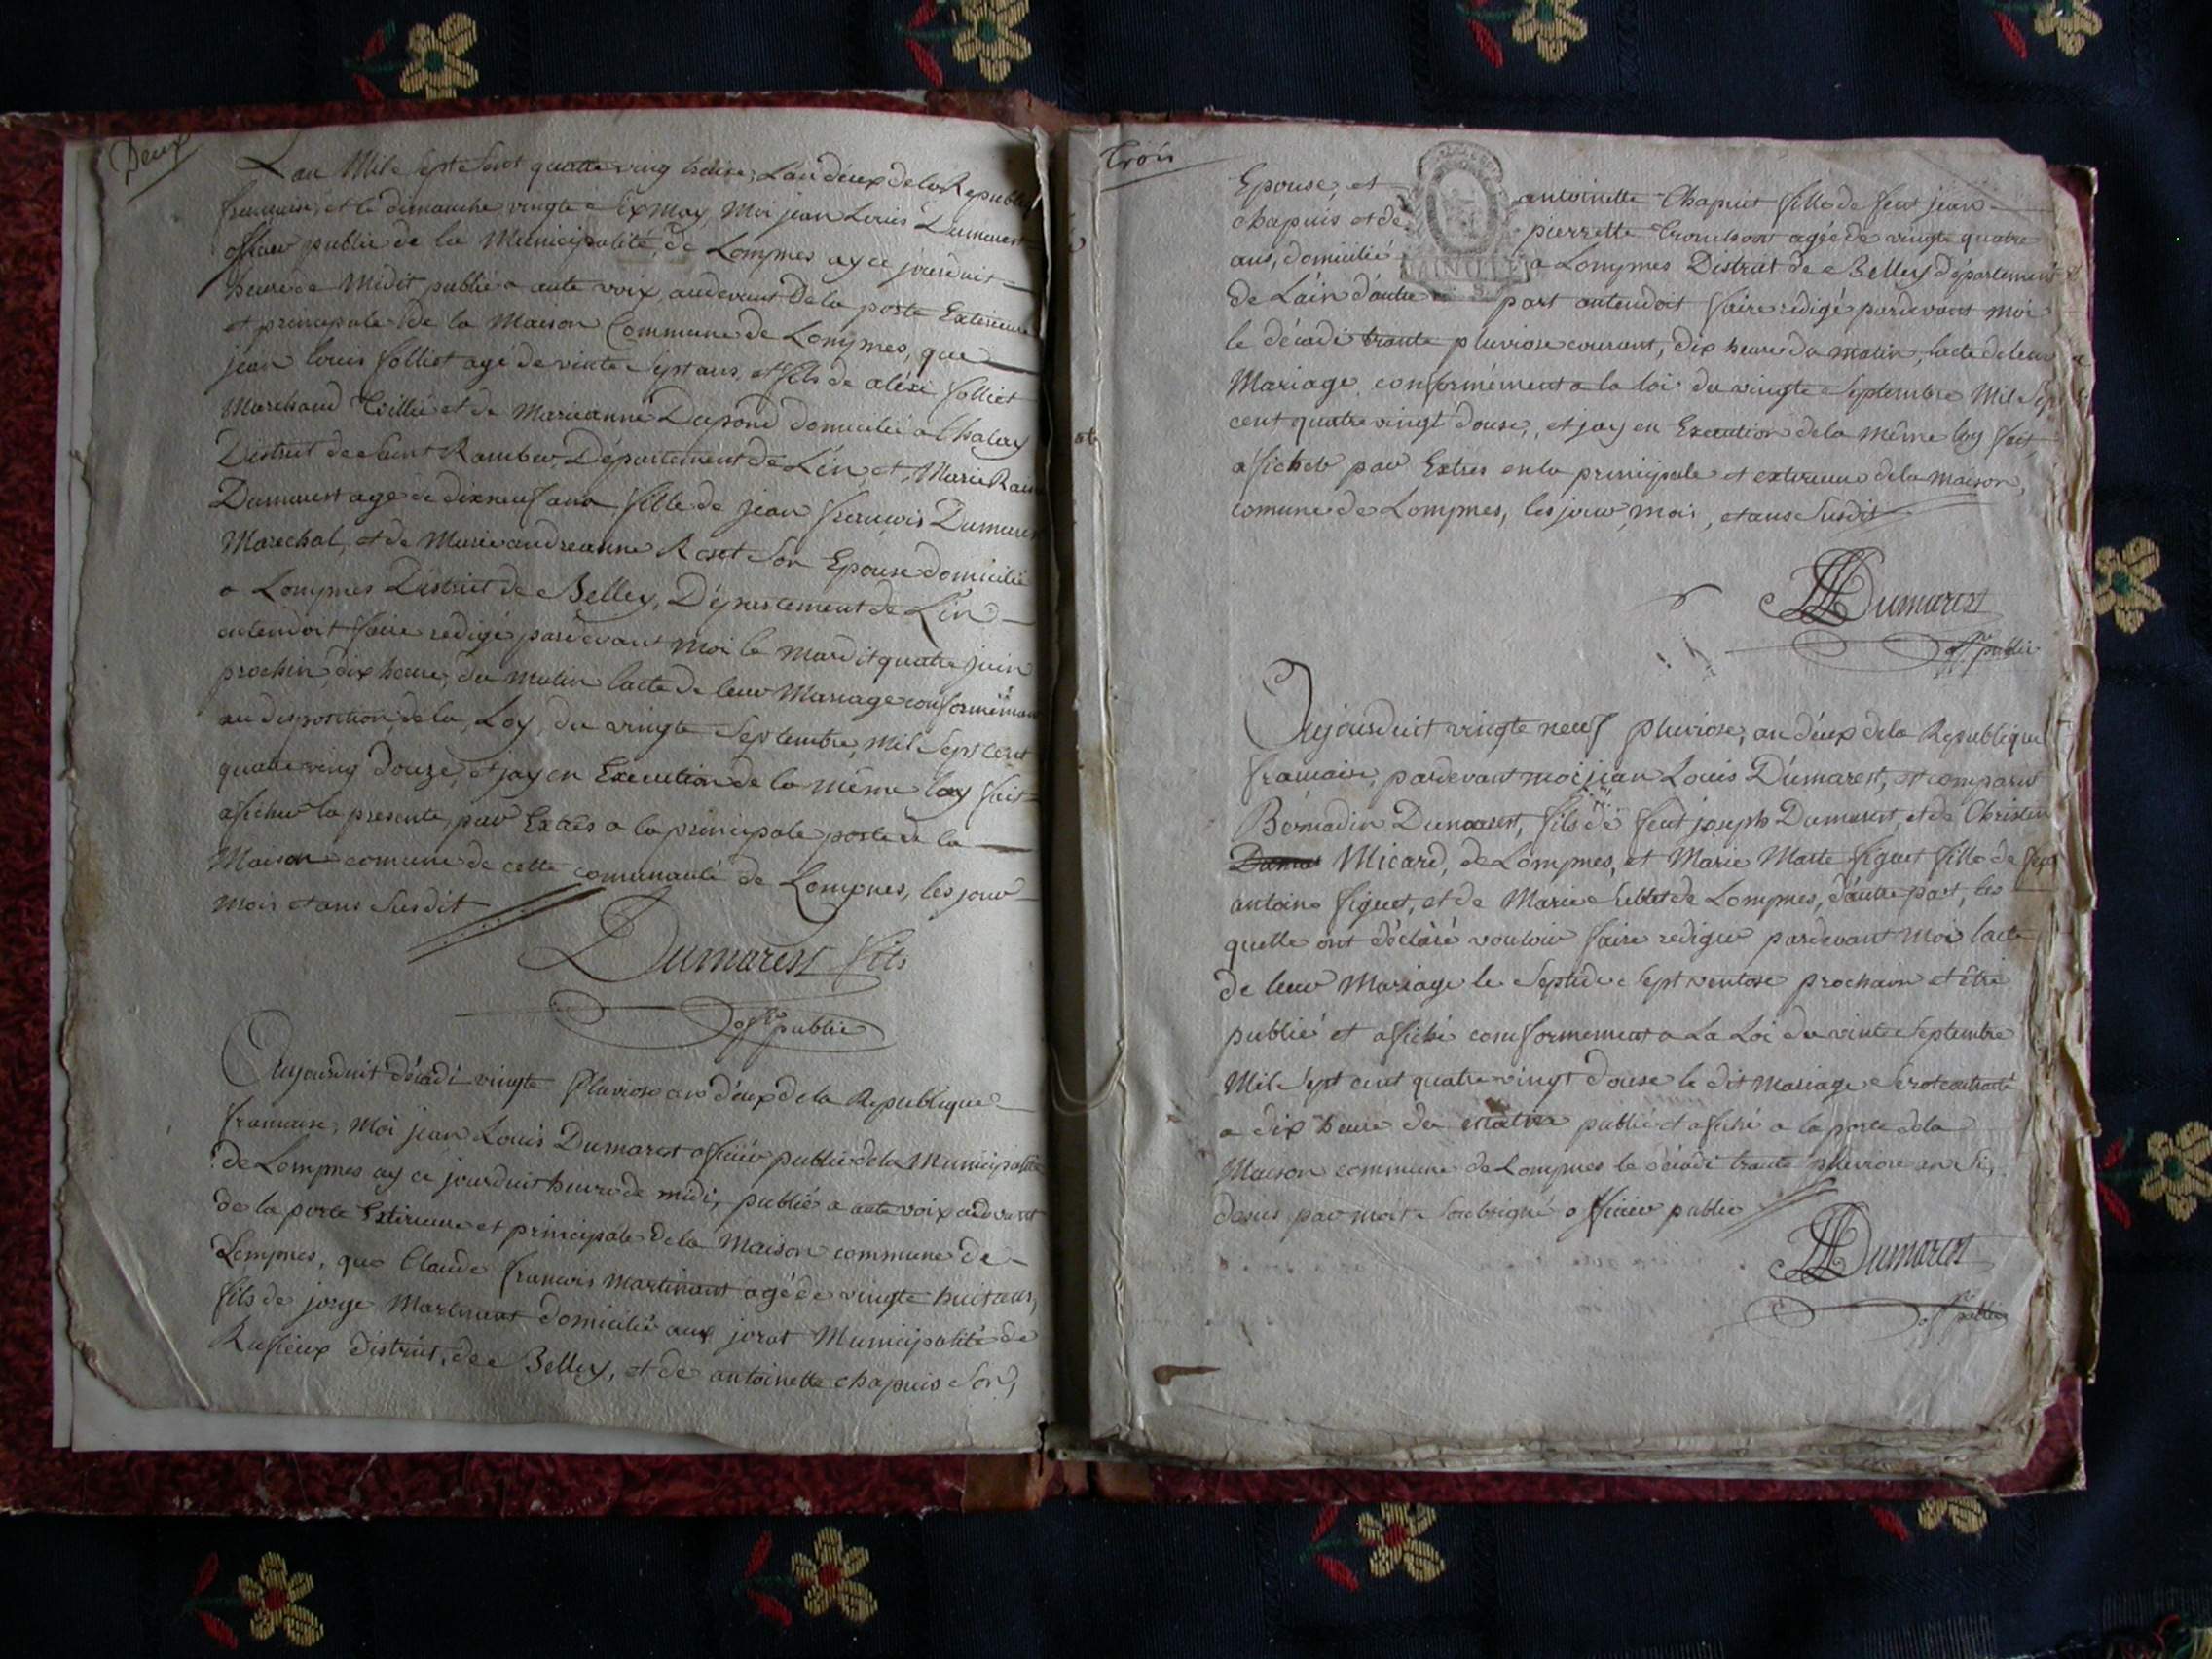 Deux
Lan Mil Sept Sent quattre ving treise, Lan deux de la Republiq
francaise, et le dimanche vingte Six May, Moi jean Louis Dumarest
officier public de la Municipalité de Lompnes ay ce jourduit
heure de Midit publié a aute voix, audevant De la porte Exterieure
et principale de la Maison Commune de Lompnes, que
jean louis folliet agé de vinte Sept ans, et fils de aléxi folliet
Marchand et de Marieanne Dupond domicilié a Chaley
District de Saint Rambert, Département de L'in, et Marie
Dumarest age de dixneuf ans fille de jean francois Dumarest
Marechal, et de Marieandreanne Roset Son Epouse domicilié
a Lompnes District de Belley, Département de L'in
autendoit faire redigé pardevant Moi le Mardit quatre juin
prochin, dix heure, du matin lacte de leur Mariage conformémant
au disposition de la Loy, du vingte Septembre, Mil Sept Cent
quatre ving douze, et jay en Execution de la même loy fait
aficher la presente, par Extrès a la principale porte de la
Maison comune de cette comunauté de Lompnes, les jour
mois et ans Susdit
Dumarest fils
offr public
Aujourduit décadi vingte Pluviose an deux de la Republique
francaise, Moi jean Louis Dumarest officiér public de la Municipalité
de Lompnes ay ce jourduit heure de midi, publié a aute voix audevant
de la porte Exterieure et principale de la Maison commune de
Lompnes, que Claude francois Martinant agé de vingte huit ans,
fils de jorge Martinant domicilié aux jorat Municipalité de
Rufieux district, de Belley, et de antoinette chapuis Son,
trois
Epouse, et antoinette Chapuit fille de feut jean
chapuis et de pierrette agée de vingte quatre
ans, domicilié a Lompnes District de Belley département
de Lain d'autre part autendoit faire redigé pardevant moi
le décadi trante pluviose courant, dix heure du matin, lacte de leur
Mariage, conformément a la loi du vingte Septembre Mil Sept
cent quatre vingt douse, et jay en Execution de la même loy fait
aficheb par Extres en la principale et exterieure de la maison,
comune de Lompnes, les jour, mois, et ans Susdit
JLDumarest
offr public
Aujourduit vingte neuf pluviose, an deux de la Republique
francaise, pardevant moi jean Louis Dumarest, est comparus
Bernadin Dumarest, fils de feut joseph Dumarest, et de Christin
Micard, de Lompnes, et Marie Marte figuet fille de feu
antoine figuet, et de Marie de Lompnes, dautre part, les
quelle ont déclaré vouloir faire rediger pardevant moi lacte
de leur Mariage le Septidi Sept ventose prochain et être
publié et afiché conformement a La Loi du vinte Septembre
Mil Sept cent quatre vingt douse le dit mariage Serat contracté
a dix heure du matin publié et afiché a la porte de la
Maison commune de Lompnes le décadi trante pluviose an Si
desus par moi Soubsigné officier public
JLDumarest
offr public